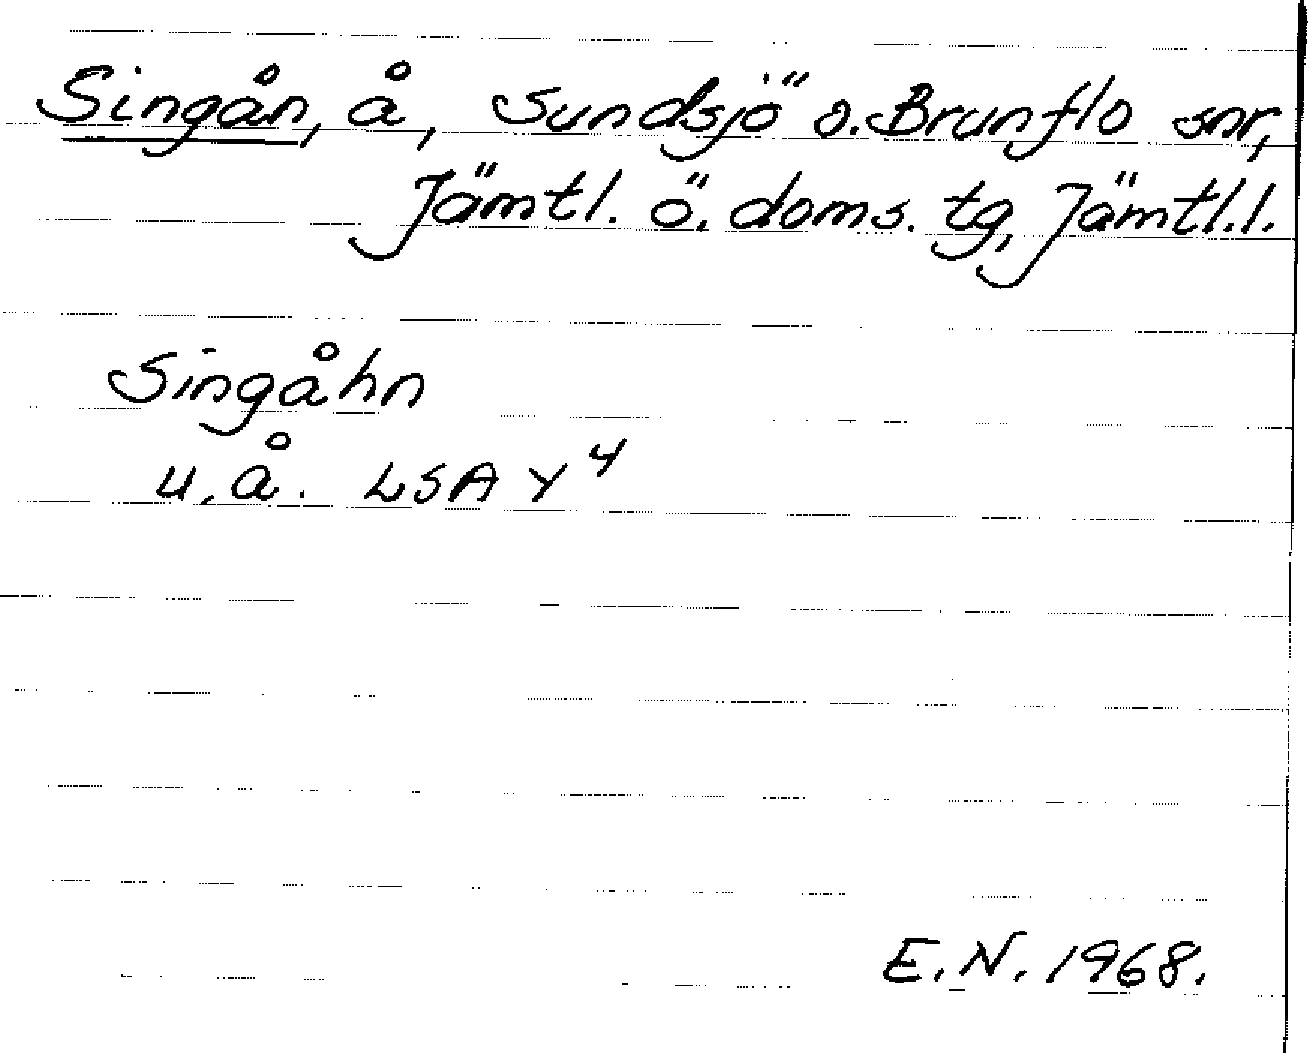 Singån, å, Sundsjö o. Brunflo snr,
Jämtl. ö. doms. tg, Jämtl. l.
Singåhn
u. å. LSA Y 4
E. N. 1968.